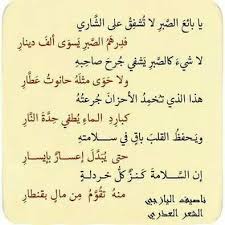 يا بائعَ الصَّبرِ لا تُشفِقْ على الشَّاري
فدِرهَمُ الصَّبرِ يَسوَى ألفَ دينارِ
لا شيءَ كالصَّبرِ يَشفي جُرحَ صاحبِهِ
ولا حَوى مثلَهُ حانوتُ عطَّارِ
هذا الذي تُخمِدُ الأحزانَ جُرعتُهُ
كباردِ الماءِ يُطفي حِدةَ النَّارِ
ويَحفظُ القلبَ باقٍ في سلامتِهِ
حتى يُبَدَّلَ إعسارٌ بإيسارِ
إن السَّلامةَ كنزٌ كلُّ خردلةٍ
منهُ تُقوَّمُ من مالٍ بقنطارِ
ناصيف اليازجي
الشعر العذري